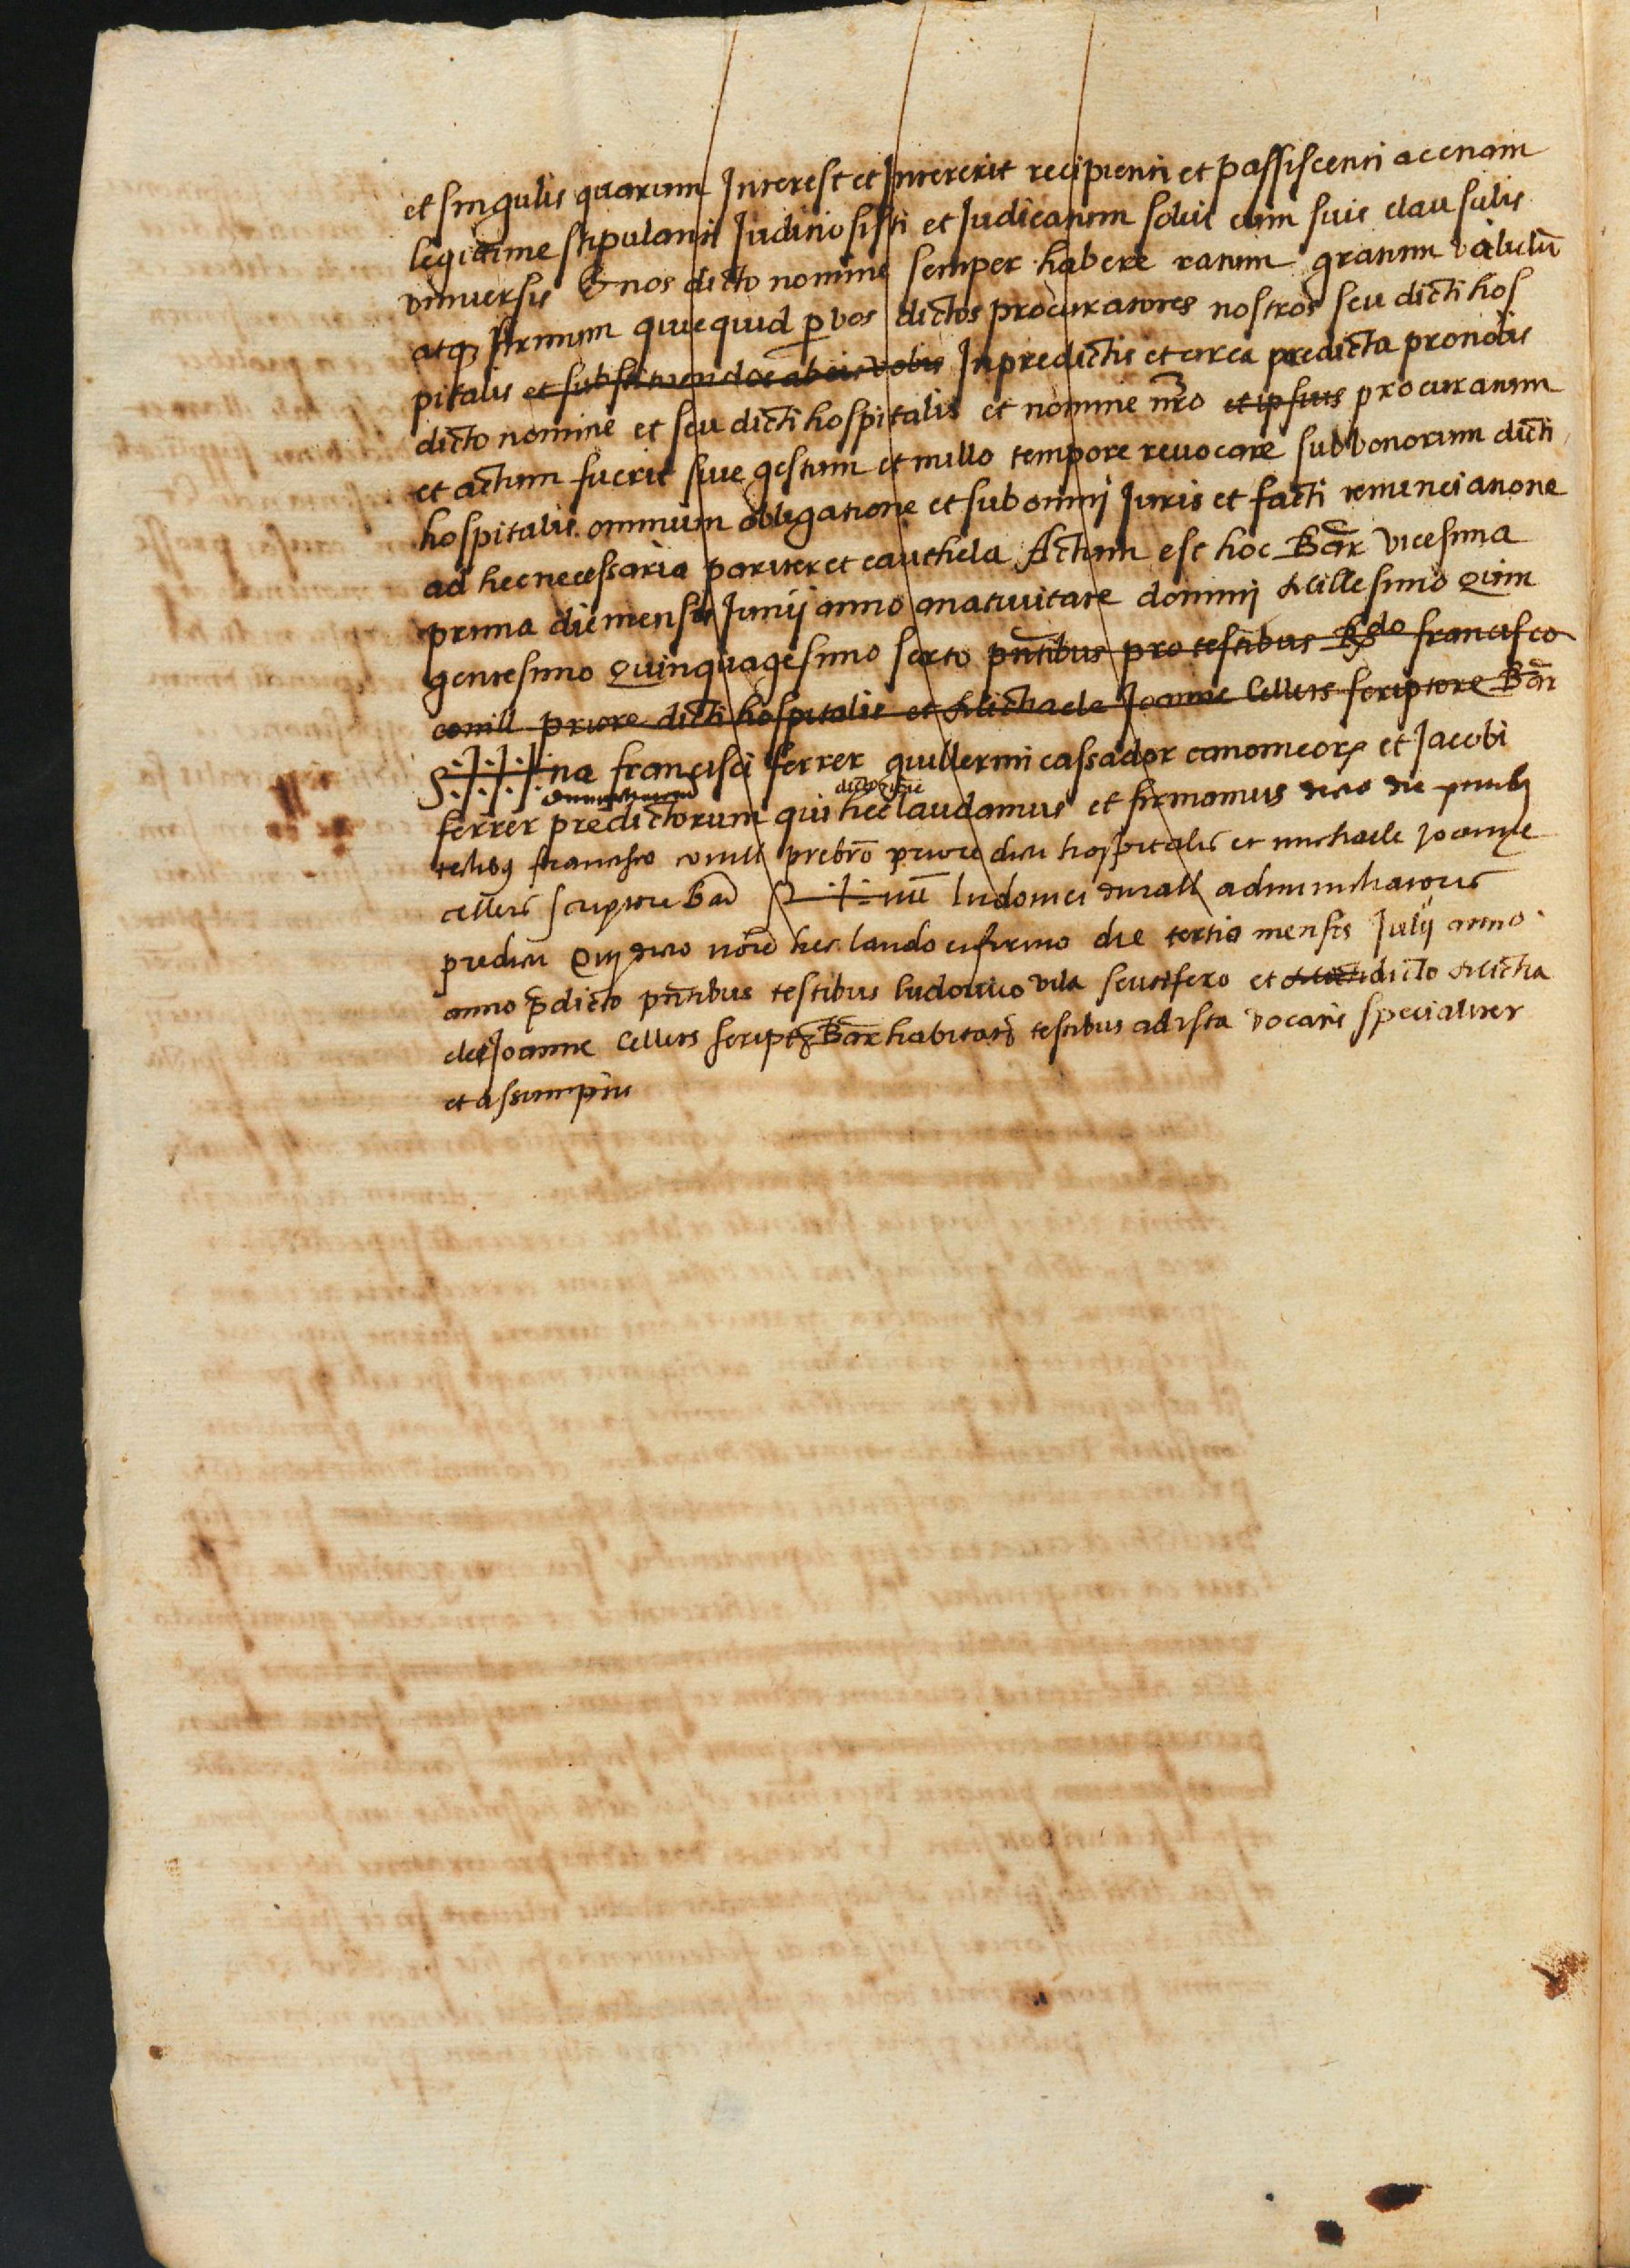 et singulis quarum Interest et Intererit recipienti et passiscenti ac etiam
legittime stipulanti Juditio sisti et Judicatum solvi cum suis clausulis
universis Et nos dicto nomine semper habere ratum gratum validũ
atq3 firmum quicquid p vos dictos procuratores nostros seu dicti hos
pitalis et substituendos ab eis vobis In predictis et circa predicta pro nobis
dicto nomine et seu dicti hospitalis et nomine nr̃o et ipsius procuratum
et actum fuerit sive gestum et nullo tempore revocare sub bonorum dicti
hospitalis omnium obligatione et sub omnij Juris et facti renunciatione
ad hec necessaria pariter et cauthela Actum est hoc Bar̃ vicesima
prima die mensis Junij anno anativitate dominj Millesimo Quin
gentesimo Quinquagesimo sexto pñtibus pro testibus Rdo francisco
conill priore dicti hospitalis et Michaele Joanne Cellers scriptore Bar̃
S+++na francisci ferrer guillermi cassador canonicorꝝ et Jacobi
ferrer predictorum qui hec dicto noĩe laudamus et firmamus dicto die pñtibꝫ
testibꝫ francisco conill prebr̃o priore dicti hospitalis et michaele Joanne
cellers scriptore Bar̃ S+nũ ludovici durall administratoris
predicti Qui dicto noĩe hec laudo et firmo die tertia mensis Julij anno
anno p̃dicto pñtibus testibus ludovico vila scutifero et dicto Micha
ele Joanne Cellers script3 Bar̃ habitatꝫ testibus ad ista vocatis specialiter
et assumptis